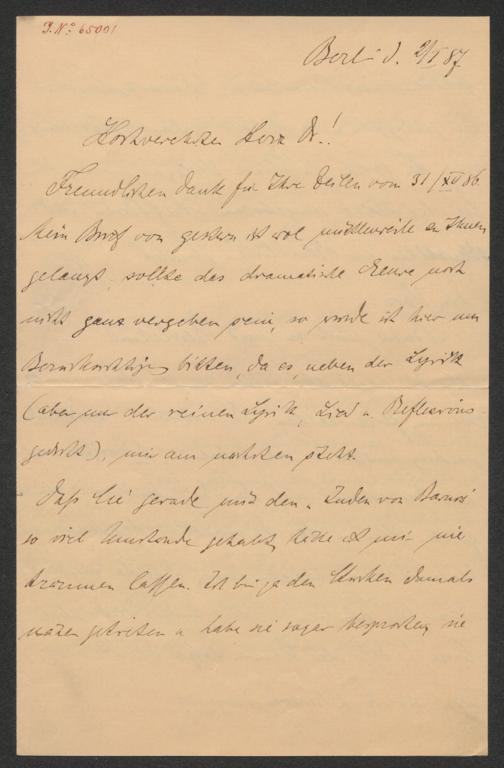 I.N° 65001
Berlin d. 2/I 87
Hochverehrter Herr Dr!
Freundlichen Dank für Ihre Zeilen vom 31/XII 86.
Mein Brief von gestern ist wol mittlerweile an Ihnen
gelangt, sollte das dramatische Genre noch
nicht ganz vergeben sein, so würde ich hier um
Berücksichtigung bitten, da es, neben der Lyrik
(aber nur der reinen Lyrik, Lied u. Reflexions-
gedicht), mir am nächsten steht.
Daß Sie gerade mit den "Juden von Barnow"
so viel Umstände gehabt, hätte ich mir nie
träumen lassen. Ich bin ja den Stücken damals
näher getreten u habe sie sogar besprochen, sie